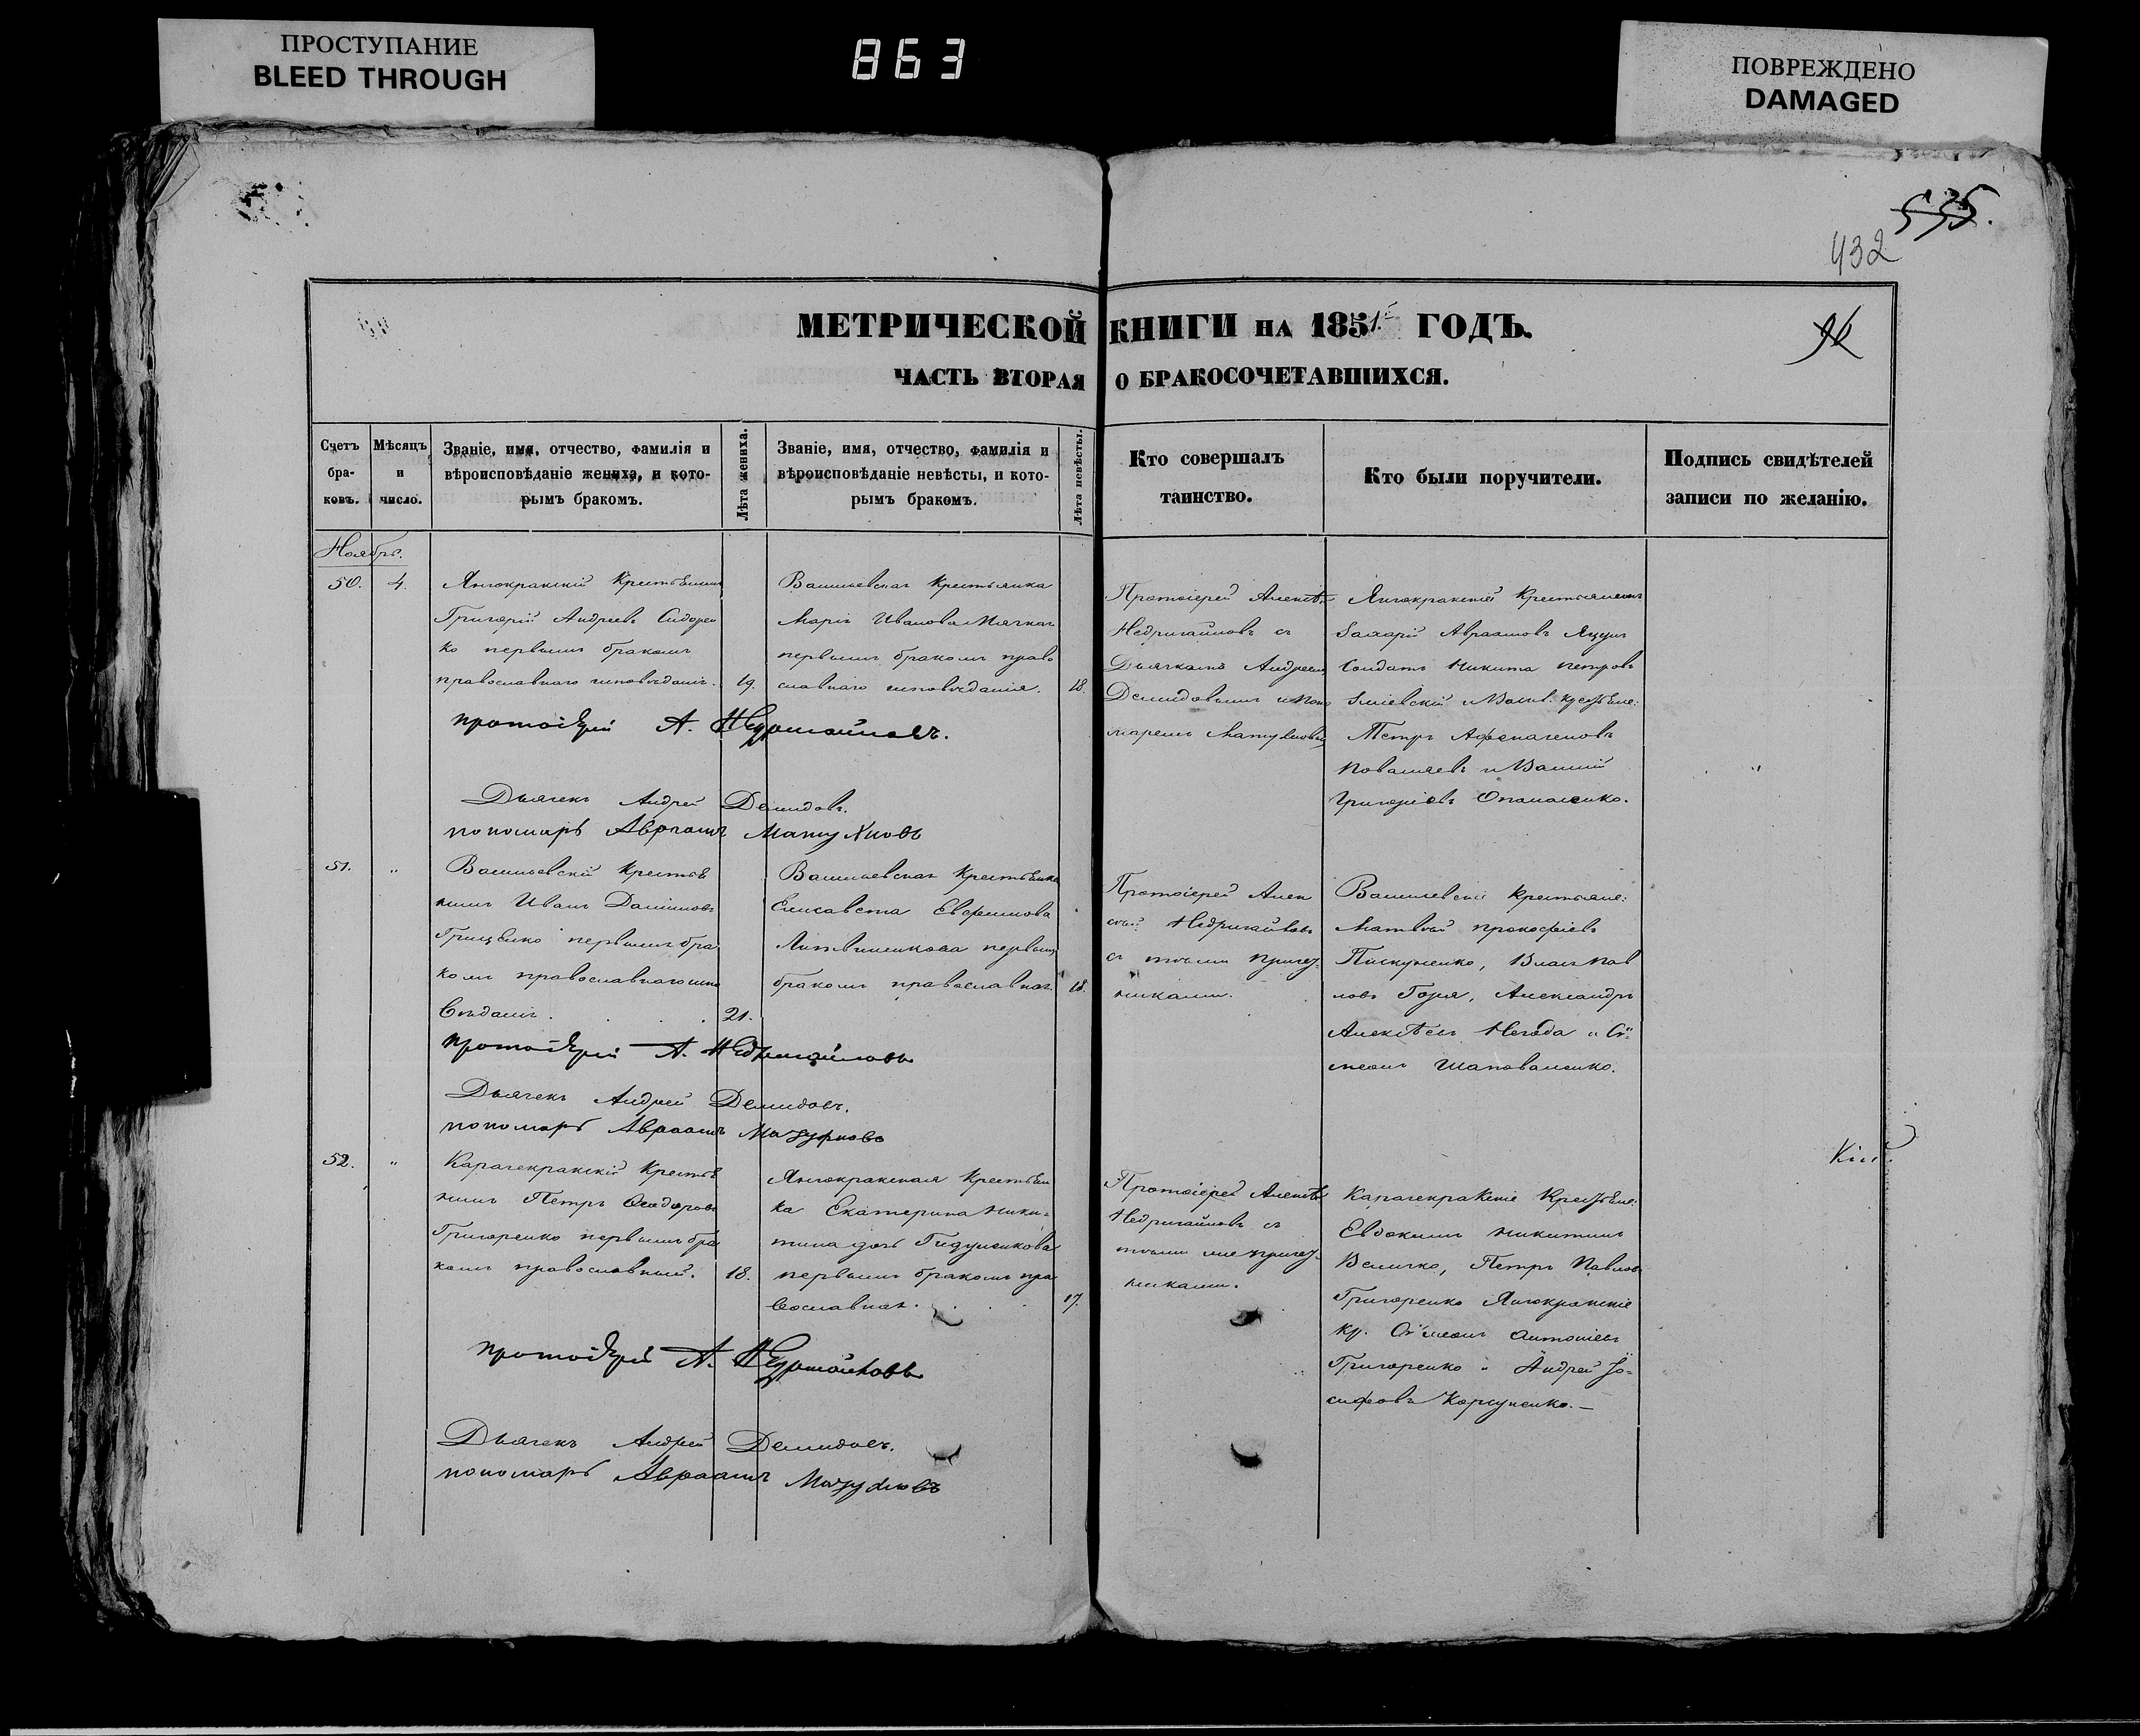 ПРОСТУПАНИЕ
BLEED THROUGH
863
ПОВРЕЖДЕНО
DAMAGED
535.
432
МЕТРИЧЕСКОЙ КНИГИ НА 1851 ГОДЪ.
96
ЧАСТЬ ВТОРАЯ О БРАКОСОЧЕТАВШИХСЯ.
Счетъ бра- ковъ.
Мѣсяцъ и число.
Званіе, имя, отчество, фамилія и
вѣроисповѣданіе жениха, и кото-
рымъ бракомъ.
Лѣта жениха.
Званіе, имя, отчество, фамилія и
вѣроисповѣданіе невѣсты, и кото-
рымъ бракомъ.
Лѣта невѣсты.
Кто совершалъ
таинство.
Кто были поручители.
Подпись свидѣтелей
записи по желанію.
Ноябрь.
50. 4.
Янчокракскій Крестьянинъ
Григорій Андреевъ Сидорен
ко первымъ бракомъ
православнаго исповѣданія. 19.
Васильевская Крестьянка
Марія Иванова Мягкая
первымъ бракомъ право
славнаго исповѣданія. 18.
Протоіерей Алексѣй
Недригайловъ съ
Дьячкомъ Андреемъ
Демидовымъ и Поно
маремъ
Янчокракскій Крестьянинъ
Захарій Авраамовъ Яцунъ
Солдатъ Никита Петровъ
Зміевскій и Васил. Крестьяне:
Петръ
и Василій
Григоріевъ Опанасенко.
протоіерей А. Недригайловъ.
Дьячекъ Андрей Демидовъ.
пономарь Авраамъ
51. "
Васильевскій Крестья
нинъ Иванъ Даніиловъ
Грищенко первымъ бра
комъ православнаго испо
вѣданія. 21.
Васильевская Крестьянка
Елисавета Евфимова
Литвиненкова первымъ
бракомъ православная. 18.
Протоіерей Алек
сѣй Недригайловъ
съ тѣми причет
никами.
Васильевскіе Крестьяне:
Матвѣй Прокофіевъ
Пискуненко, Власъ Пав
ловъ Горя, Александръ
Алексѣевъ Негода и Си
меонъ Шаповаленко.
протоіерей А. Недригайловъ
Дьячекъ Андрей Демидовъ.
пономарь Авраамъ
52. "
Карачекракскій Крестья
нинъ Петръ Ѳеодоровъ
Григоренко первымъ бра
комъ православный. 18.
Янчокракская Крестьян
ка Екатерина Ники-
тина дочь
первымъ бракомъ пра
вославная. 17.
Протоіерей Алексѣй
Недригайловъ съ
тѣми же причет
никами.
Карачекракскіе Крестьяне:
Евдокимъ Никитинъ
Величко, Петръ Павловъ
Григоренко Янчокракскіе
кр. Симеонъ Антоніевъ
Григоренко и Андрей Іо-
сифовъ Корсуненко.—
протоіерей А. Недригайловъ
Дьячекъ Андрей Демидовъ.
пономарь Авраамъ